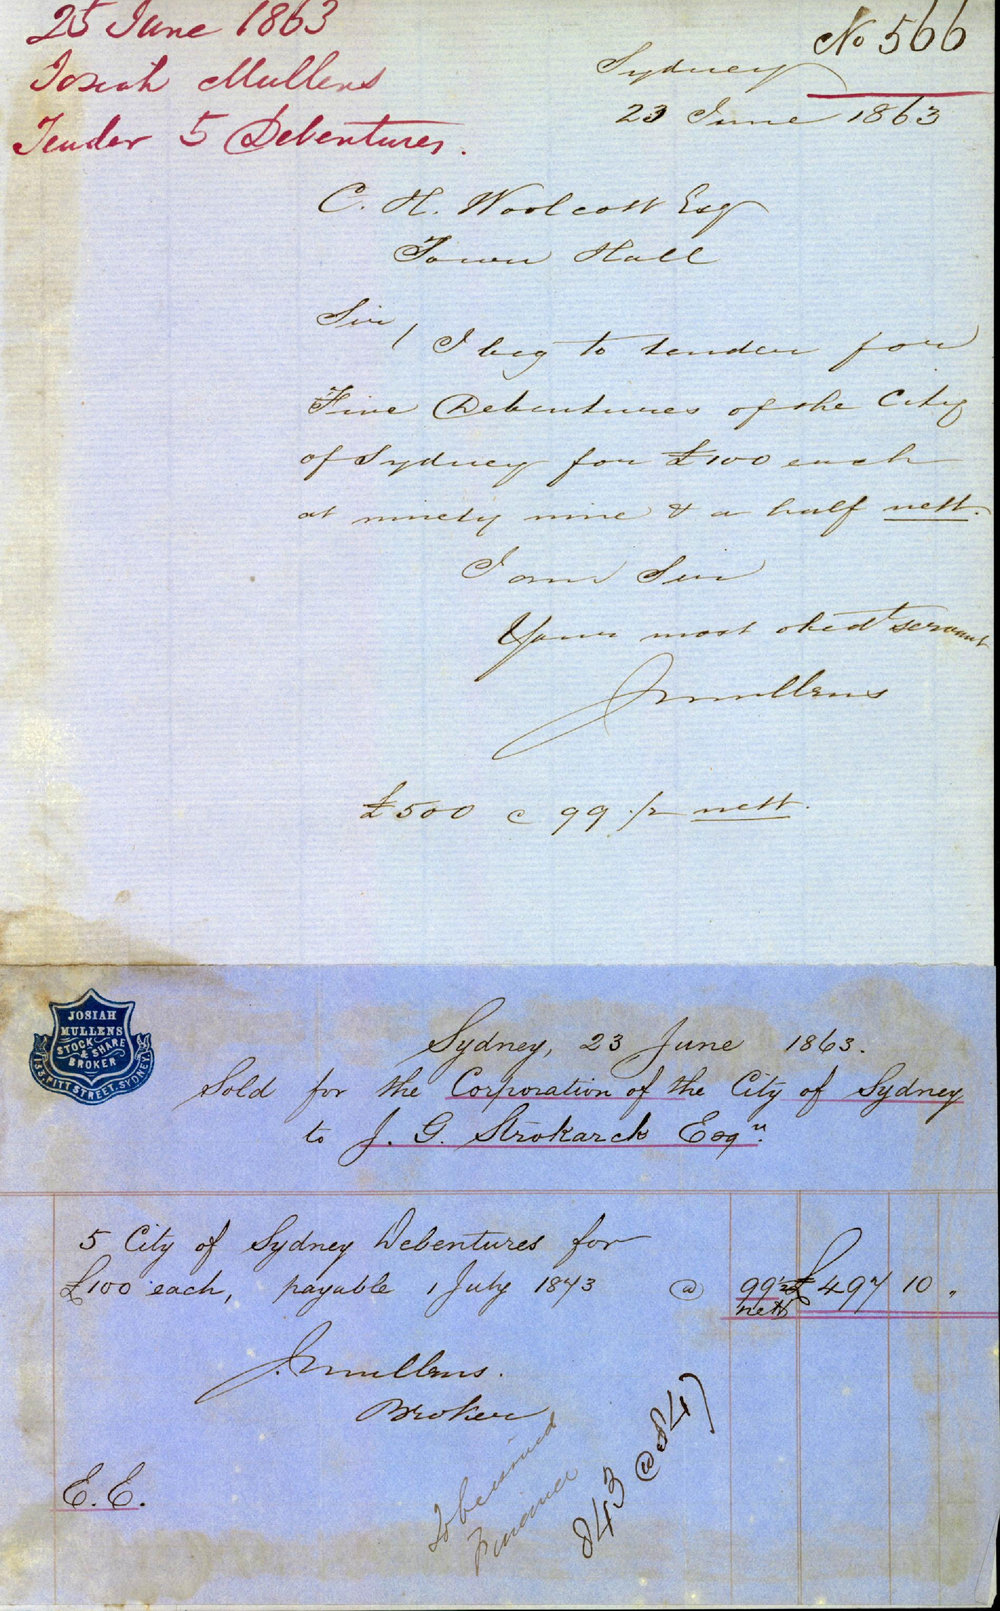 25 June 1863
Josiah Mullens
Tender 5 Debentures.
No 566
Sydney
23 June 1863
C. H. Woolcott Esq
Town Hall
Sir/
I beg to tender for
Five Debentures of the City
of Sydney for £100 each
at ninety nine & a half nett.
I am Sir
Yours most obedt servant
J Mullens
£500 @ 99 1/2 nett.
JOSIAH
MULLENS
STOCK
& SHARE
BROKER
133, PITT STREET, SYDNEY.
Sydney, 23 June 1863.
Sold for the Corporation of the City of Sydney
to J. G. Strokarck Esqr.
5 City of Sydney Debentures for
£100 each, payable 1 July 1873 @ 99 1/2 £497 10 "
nett
J. Mullens.
Broker
E. E.
To be issued
Finance
843 @ 847